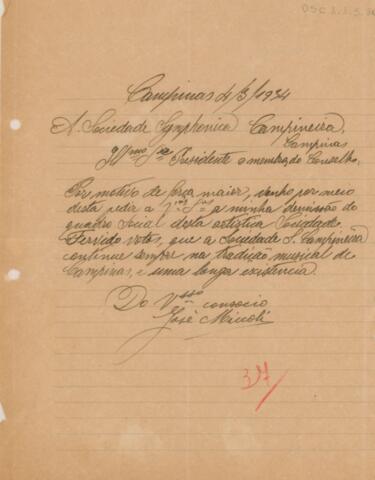 Campinas 4/3/1934
A Sociedade Symphonica Campineira,
Campinas
Illmo Snr Presidente e membros do Conselho.
Por motivo de força maior, venho por meio
desta pedir a V.cias S.as a minha demissão do
quadro social desta artistica Sociedade.
Fervido votos, que a Sociedade S. Campineira
continue sempre na tradução musical de
Campinas, e uma longa existencia.
Do Vsso consocio
José Miccoli
37/